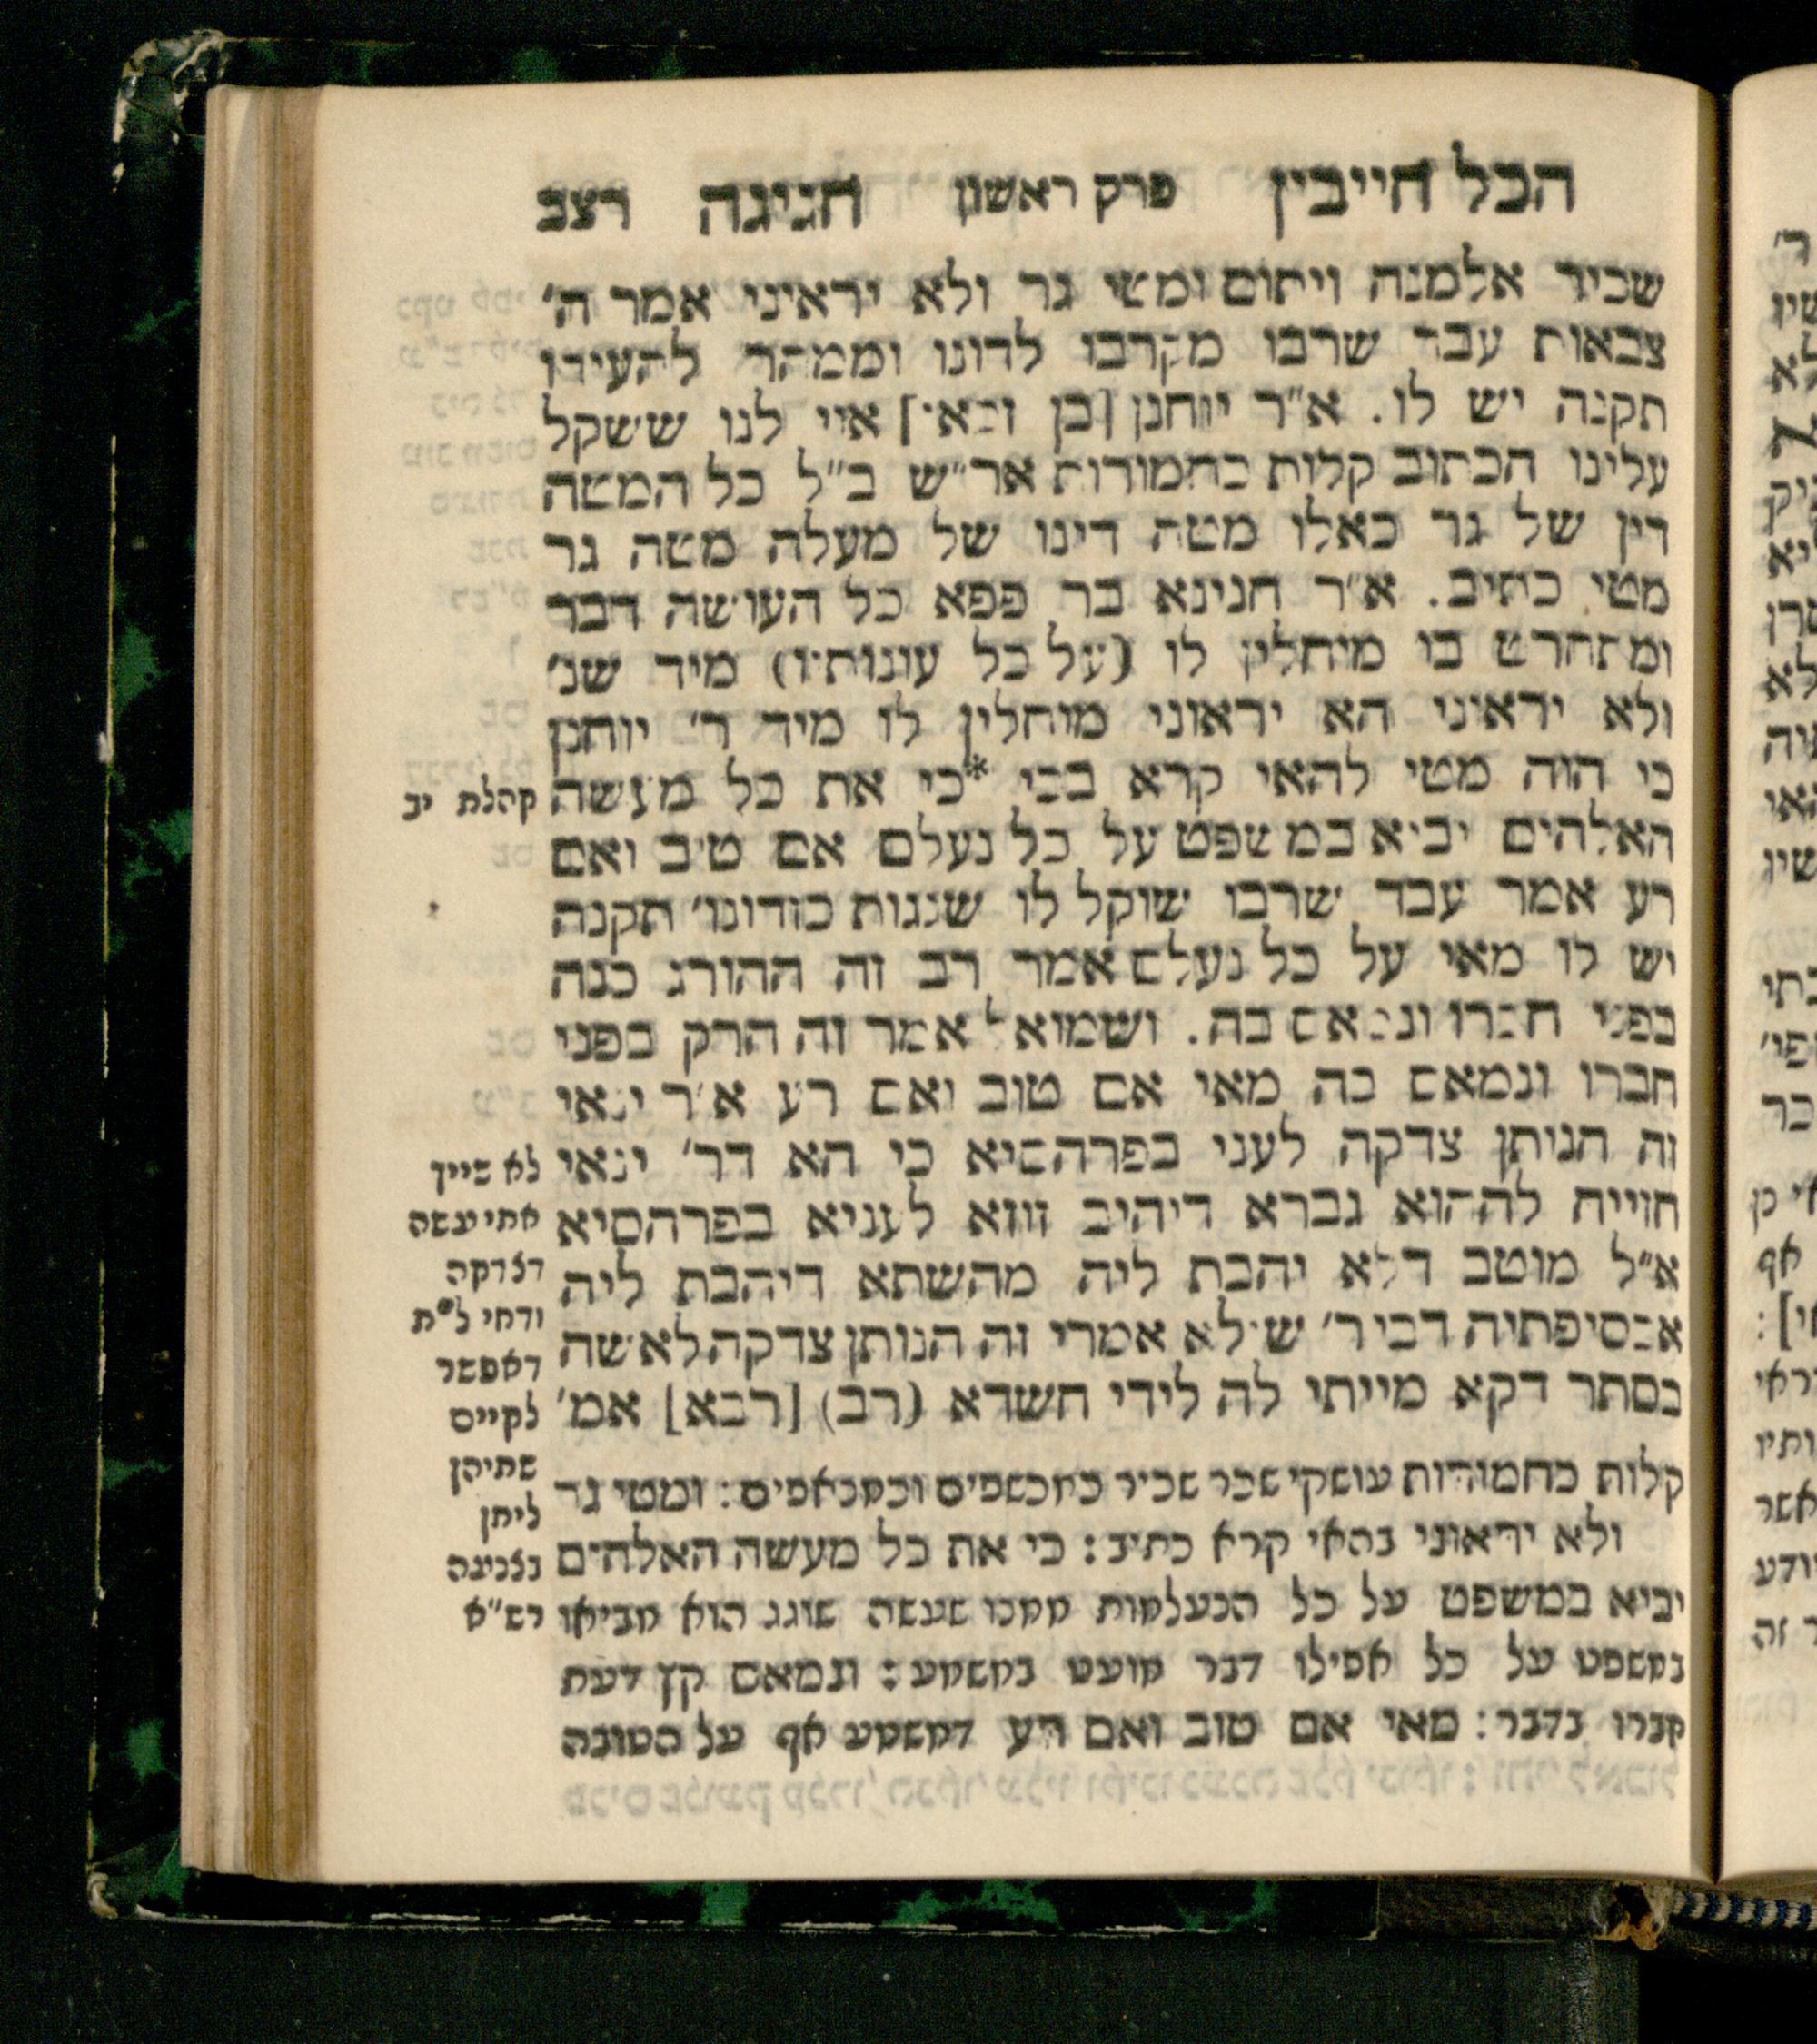 הכל חייבין פרק ראשון חגיגה רצב
שכיר אלמנה ויתום ומטי גר ולא יראיני אמר ה׳
צבאות עבד שרבו מקרבו לדונו וממהר להעידו
תקנה יש לו. א״ר יוחנן [בן זכאי] אוי לנו ששקל
עלינו הכתוב קלות כחמורות אר״ש ב״ל כל המטה
דין של גר כאלו מטה דינו של מעלה מטה גר
מטי כתיב. א״ר חנינא בר פפא כל העושה דבר
ומתחרט בו מוחלין לו (על כל עונותיו) מיד שנ׳
ולא יראוני הא יראוני מוחלין לו מיד ר׳ יוחנן
כי הוה מטי להאי קרא בכי *כי את כל מעשה
האלהים יביא במשפט על כל נעלם אם טוב ואם
רע אמר עבד שרבו שוקל לו שגגות כזדונו׳ תקנה
יש לו מאי על כל נעלם אמר רב זה ההורג כנה
בפני חברו ונמאס בה. ושמואל אמר זה הרק בפני
חברו ונמאס בה מאי אם טוב ואם רע א״ר ינאי
זה הנותן צדקה לעני בפרהסיא כי הא דר׳ ינאי
חזייה לההוא גברא דיהיב זוזא לעניא בפרהסיא
א״ל מוטב דלא יהבת ליה מהשתא דיהבת ליה
אכסיפתיה דבי ר׳ שילא אמרי זה הנותן צדקה לאשה
בסתר דקא מייתי לה לידי חשדא (רב) [רבא] אמ׳
קלות כחמורות עושקי שכר שכיר כמכשפים וכמנאפים: ומטי גר
ולא יראוני בהאי קרא כתיב: כי את כל מעשה האלהים
יביא במשפט על כל הנעלמות ממנו שעשה שוגג הוא מביאו
במשפט על כל אפילו דבר מועט במשמע: ונמאס קץ דעת
חברו בדבר: מאי אם טוב ואם רע דמשמע אף על הטובה
קהלת יב
לא שייך
אתי עשה
דצדקה
ודחי ל״ת
דאפשר
לקיים
שתיהן
ליתן
בצניעה
רש״א